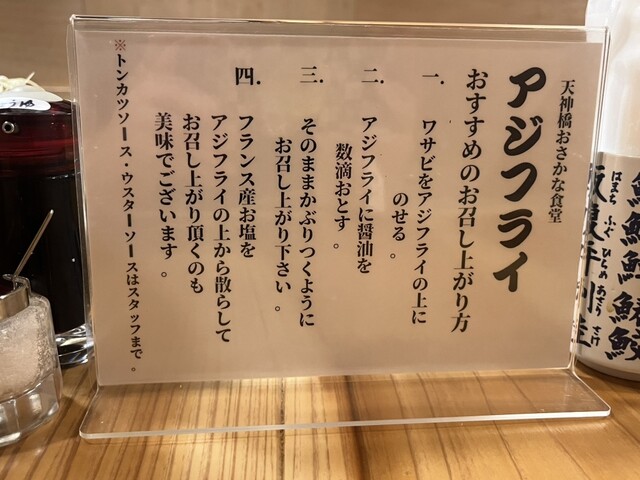 天神橋おさかな食堂
アジフライ
おすすめのお召し上がり方
一. ワサビをアジフライの上に
のせる。
二. アジフライに醤油を
数滴おとす。
三. そのままかぶりつくように
お召し上がり下さい。
四. フランス産お塩を
アジフライの上から散らして
お召し上がり頂くのも
美味でございます。
※トンカツソース・ウスターソースはスタッフまで。
はまち ふぐ ひらめ あさり さけ